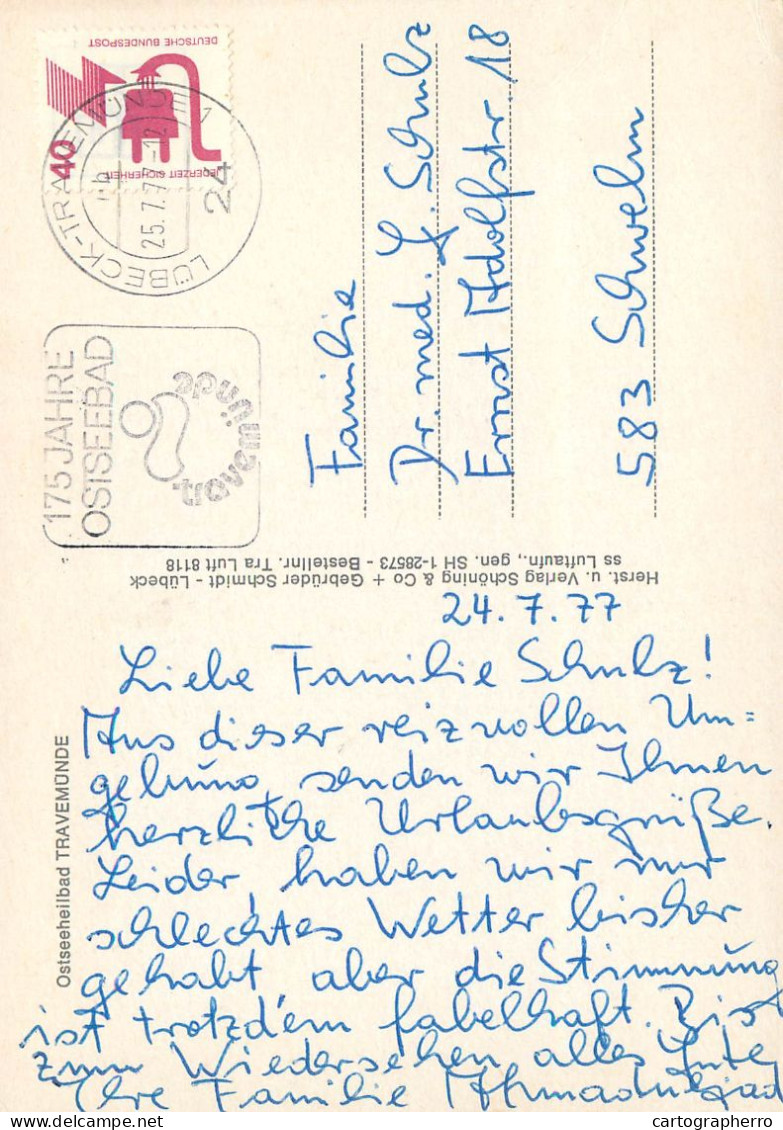 DEUTSCHE BUNDESPOST
40
JEDERZEIT SICHERHEIT
LÜBECK-TRAVEMÜNDE 1
25.7.77-12
24
175 JAHRE
OSTSEEBAD
travemünde
Familie
Dr. med. G. Schulz
Ernst Adolfstr. 18
583 Schwelm
Herst. u. Verlag Schöning & Co + Gebrüder Schmidt - Lübeck
ss Luftaufn., gen. SH 1-28573 - Bestellnr. Tra Luft 8118
Ostseeheilbad TRAVEMÜNDE
24.7.77
Liebe Familie Schulz!
Aus dieser reizvollen Um=
gebung senden wir Ihnen
herzliche Urlaubsgrüße.
Leider haben wir nur
schlechtes Wetter bisher
gehabt, aber die Stimmung
ist trotzdem fabelhaft. Bis
zum Wiedersehen alles Gute
Ihre Familie
www.delcampe.net
cartographerro